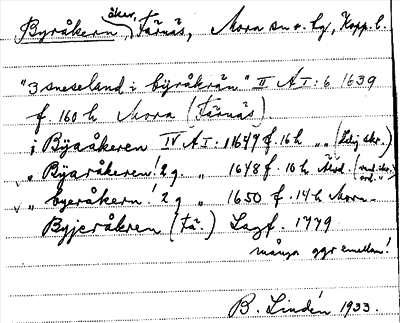 Byråkern, åker, Färnäs, Mora sn o. hg, Kopp. l.
"3 sneseland i bÿråkrän" II A I: 6 1639
f. 160 h Mora (Färnäs).
i Bÿaåkeren IV A I: 1 1647 f. 16 h „ „
„ Bÿaråkeren! 2 g. „ 1648 f. 10 h
„ byeråkern! 2 g „ 1650 f. 14 h Mora
Byjeråkren (Fä.) Lagf. 1779
många ggr emellan!
B. Lindén 1933.